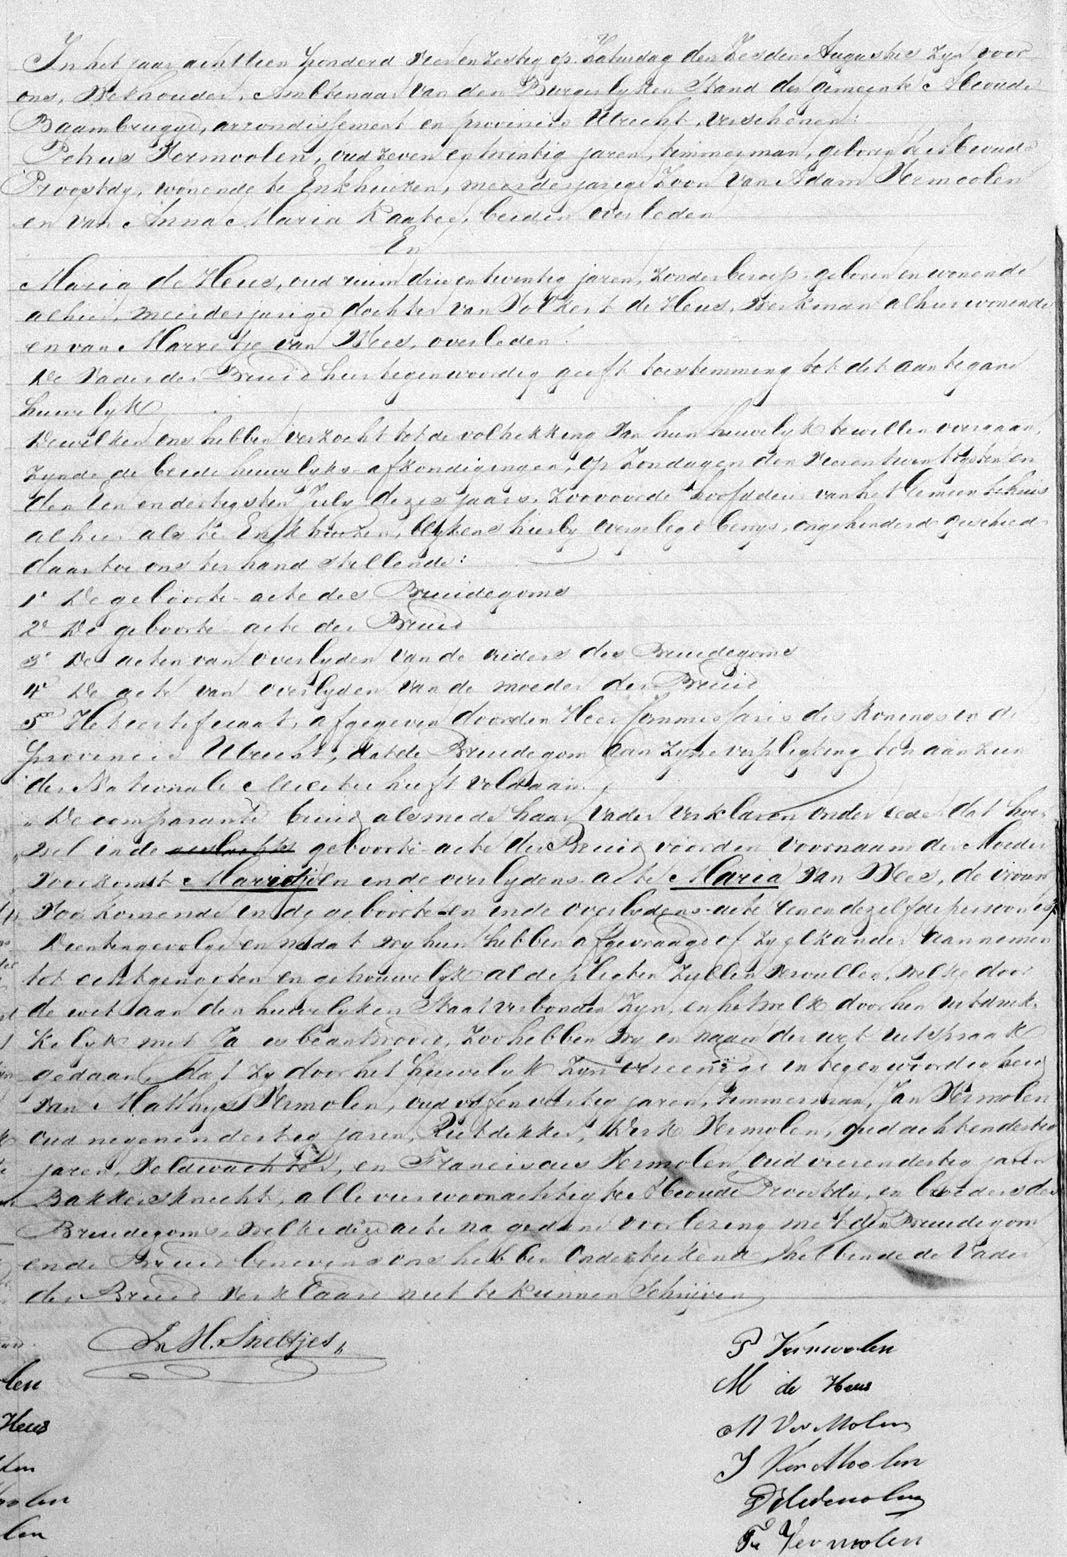 In het jaar achttien honderd vier en zestig op Zaturdag den Zesden Augustus zyn voor
ons, Wethouder, Ambtenaar van den Burgerlyken Stand der gemeente Abcoude
Baambrugge, arrondissement en provincie Utrecht, verschenen:
Petrus Vermoolen, oud zeven en twintig jaren, timmerman, geboren te Abcoude
Proostdy, wonende te Enkhuizen, meerderjarige zoon van Adam Vermoolen
en van Anna Maria Kaatee, beiden overleden
En
Maria de Heus, oud ruim drie en twintig jaren, zonder beroep, geboren en wonende
alhier, meerderjarige dochter van Volkert de Heus, Werkman alhier wonende
en van Marretje van Wees, overleden.
De Vader der Bruid hier tegenwoordig geeft toestemming tot dit aantegane
huwelyk
Dewelken ons hebben verzocht tot de voltrekking van hun huwelyk te willen overgaan,
zynde de beide huwelyks-afkondigingen, op Zondagen den vierentwintigsten en
den een en dertigsten July dezes jaars, zoo voor de hoofddeur van het Gemeentehuis
alhier als te Enkhuizen, blykens hierby overgelegd bewys, ongehinderd geschied
daartoe ons ter hand stellende:
1° De geboorte-acte des Bruidegoms
2° De geboorte-acte der Bruid
3° De acten van overlyden van de ouders des Bruidegoms
4° De acte van overlyden van de moeder der Bruid
5° Het certificaat, afgegeven door den Heer Commissaris des Konings in de
provincie Utrecht, dat de Bruidegom aan zyne verpligting ten aanzien
der Nationale Militie heeft voldaan.
De comparante bruid alsmede haar Vader verklaren onder eede dat hoe-
wel in de geboorte-acte der Bruid voor den voornaam der Moeder
voorkomt Marretje en in de overlydens-acte Maria van Wees, de vrouw
voorkomende in de geboorte- en in de overlydens-acte een en dezelfde persoon is.
Dientengevolge en nadat wy hun hebben afgevraagd of zy elkander aannemen
tot echtgenooten en getrouwelyk al de pligten zullen vervullen, welke door
de wet aan den huwelyken Staat verbonden zyn, en hetwelk door hen uitdruk-
kelyk met Ja is beantwoord, zoo hebben wy in naam der wet uitspraak
gedaan, dat zy door het huwelyk zyn vereenigd in tegenwoordigheid
van Mathys Vermolen, oud vyf en veertig jaren, Timmerman, Jan Vermolen
oud negenendertig jaren, Rietdekker, Dirk Vermolen, oud achtendertig
jaren, Veldwachter, en Franciscus Vermolen, oud vierendertig jaren
Bakkersknecht, alle vier woonachtig te Abcoude Proostdy, en broeders des
Bruidegoms, welke deze acte na gedane voorlezing met den Bruidegom
en de Bruid benevens ons hebben onderteekend, hebbende de Vader
der Bruid verklaard niet te kunnen Schrijven
H. Sneltjes
P Vermoolen
M de Heus
M Ver Molen
J Ver Moolen
D Vermolen
Fs Vermoolen
len
Heus